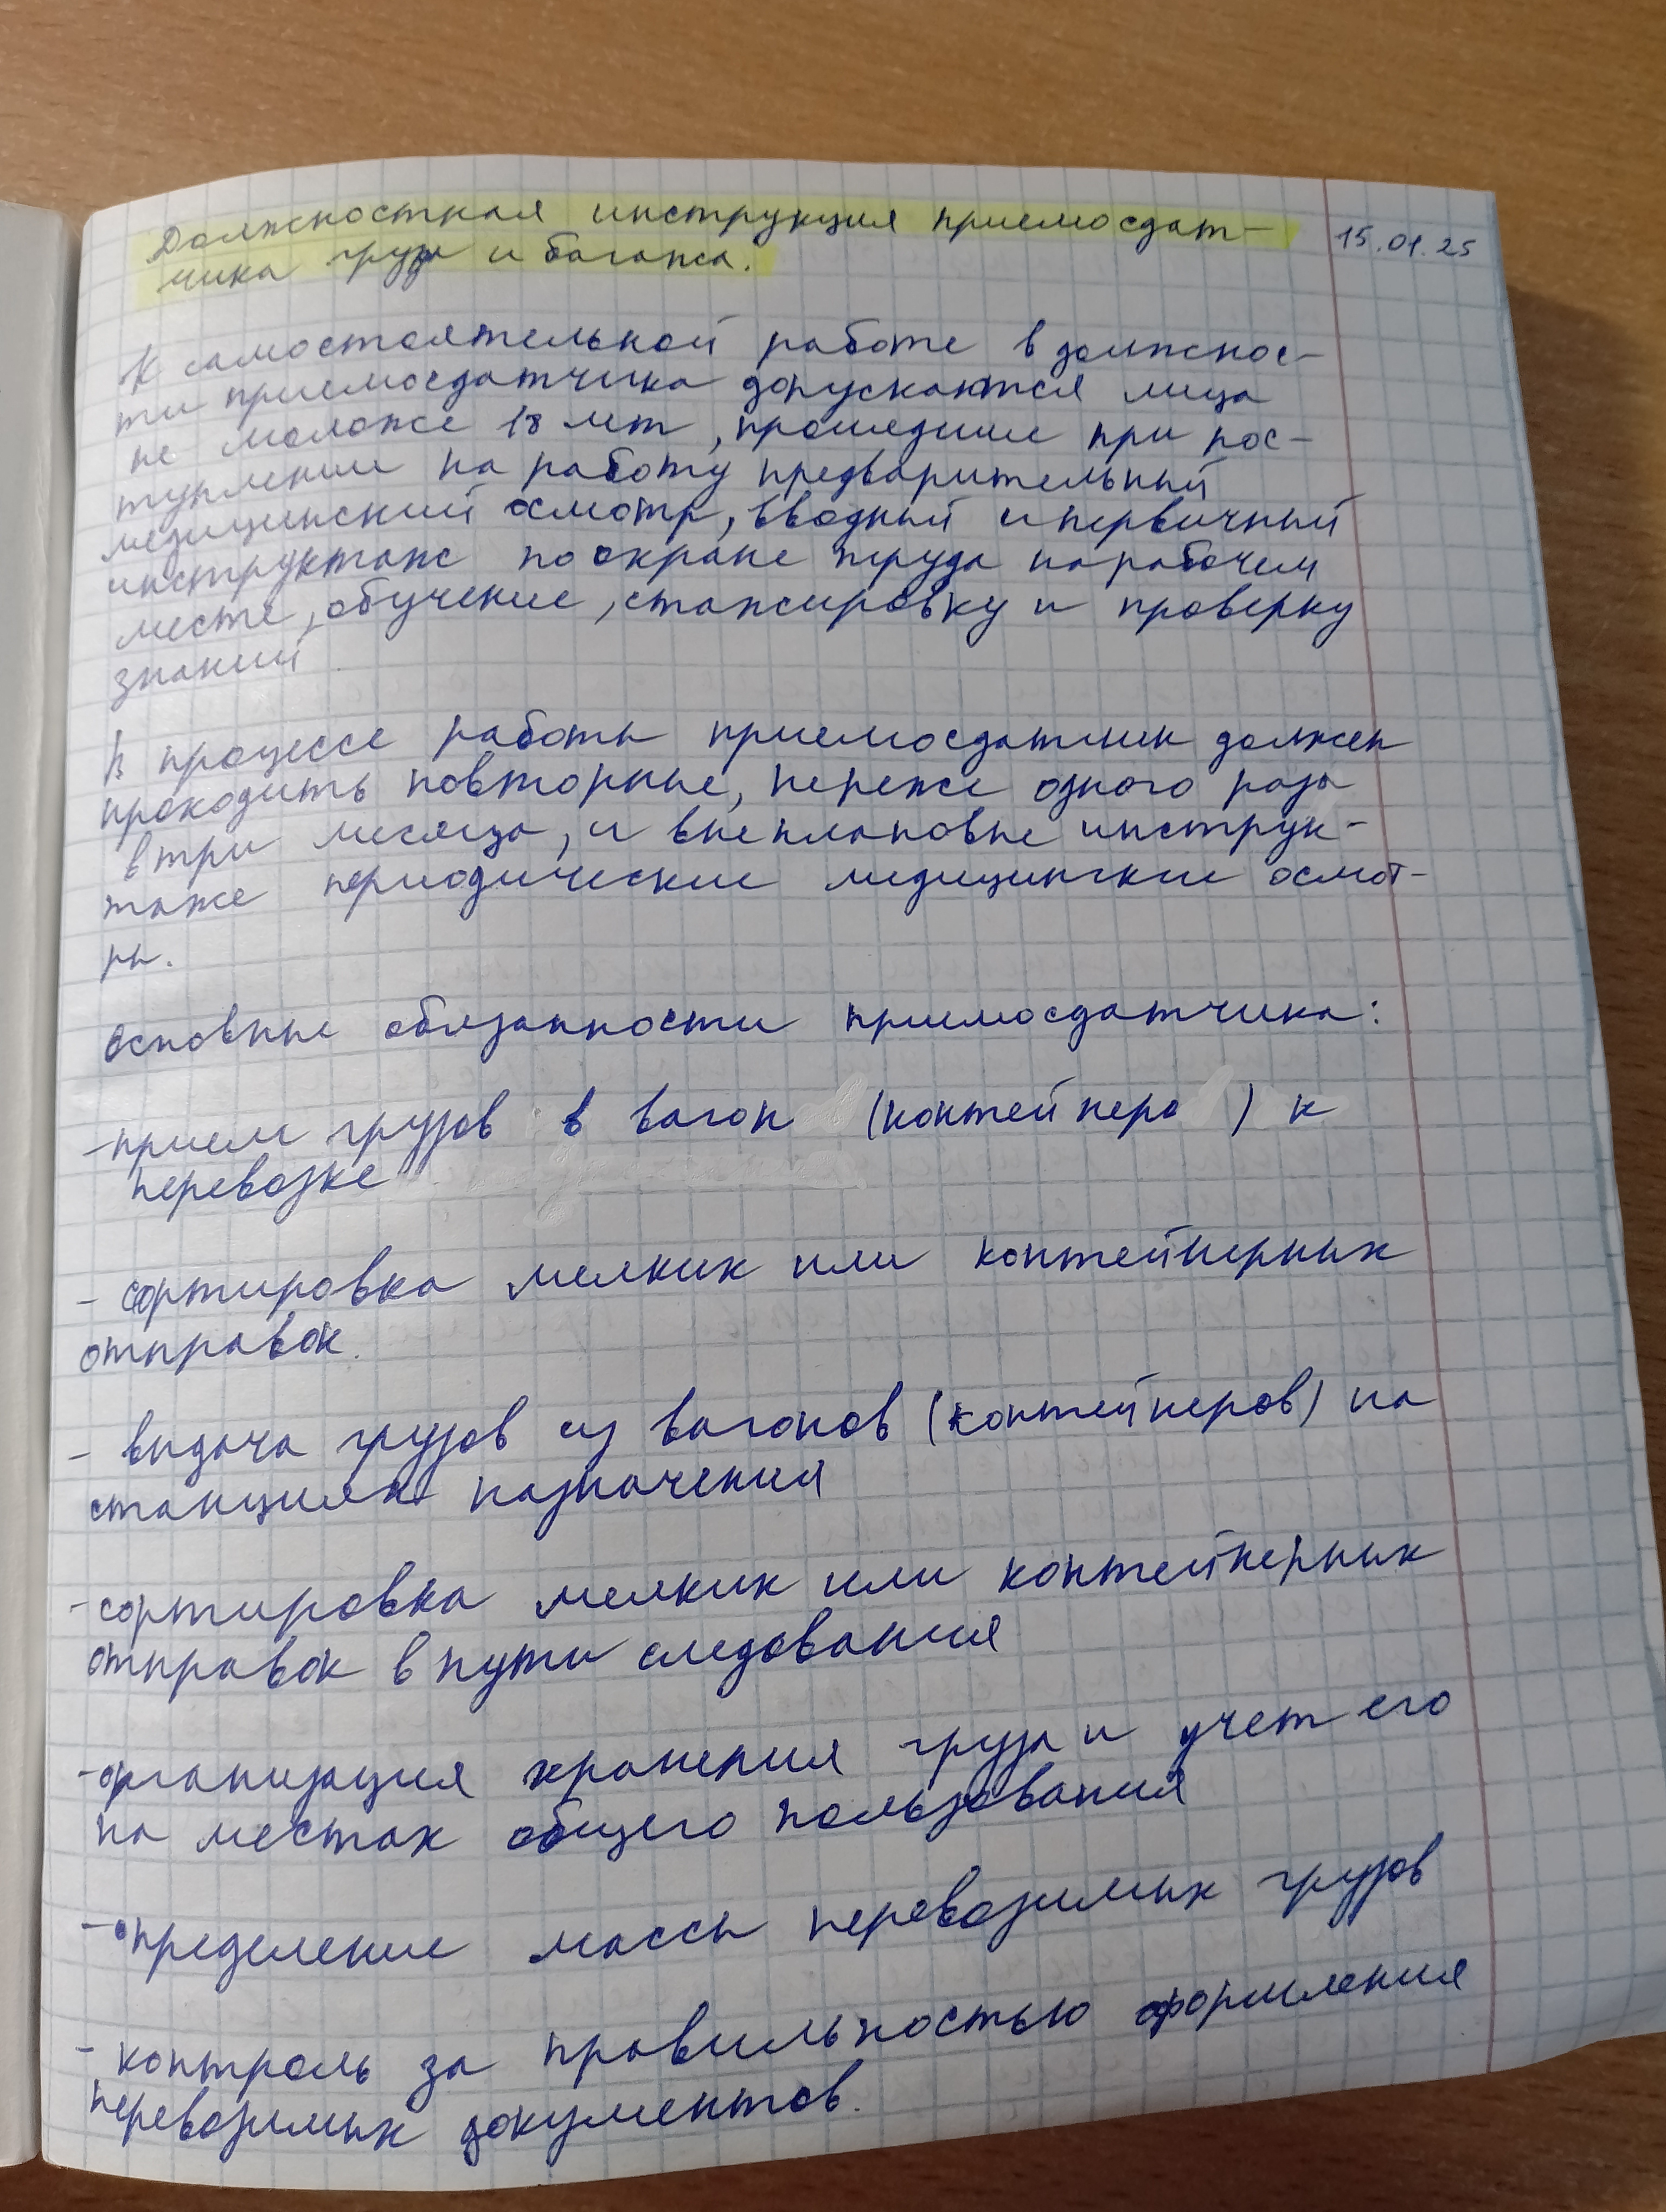 Должностная инструкция приемосдат-
чика груза и багажа.
15.01.25
К самостоятельной работе в должнос-
ти приемосдатчика допускаются лица
не моложе 18 лет, прошедшие при пос-
туплении на работу предварительный
медицинский осмотр, вводный и первичный
инструктаж по охране труда на рабочем
месте, обучение, стажировку и проверку
знаний
В процессе работы приемосдатчик должен
проходить повторные, не реже одного раза
в три месяца, и внеплановые инструк-
таже периодические медицинские осмот-
ры.
основные обязанности приемосдатчика:
- прием грузов в вагон (контейнера) к
перевозке
- сортировка мелких или контейнерных
отправок.
- выдача грузов из вагонов (контейнеров) на
станциях назначения
- сортировка мелких или контейнерных
отправок в пути следования
- организация хранения груза и учет его
на местах общего пользования
- определение массы перевозимых грузов
- контроль за правильностью оформления
перевозимых документов.